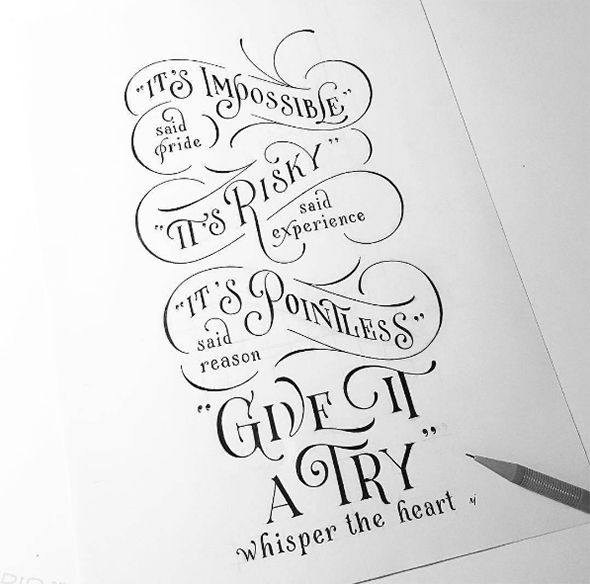 "IT'S IMPOSSIBLE"
said
pride
"IT'S RISKY"
said
experience
"IT'S POINTLESS"
said
reason
"GIVE IT
A TRY"
whisper the heart